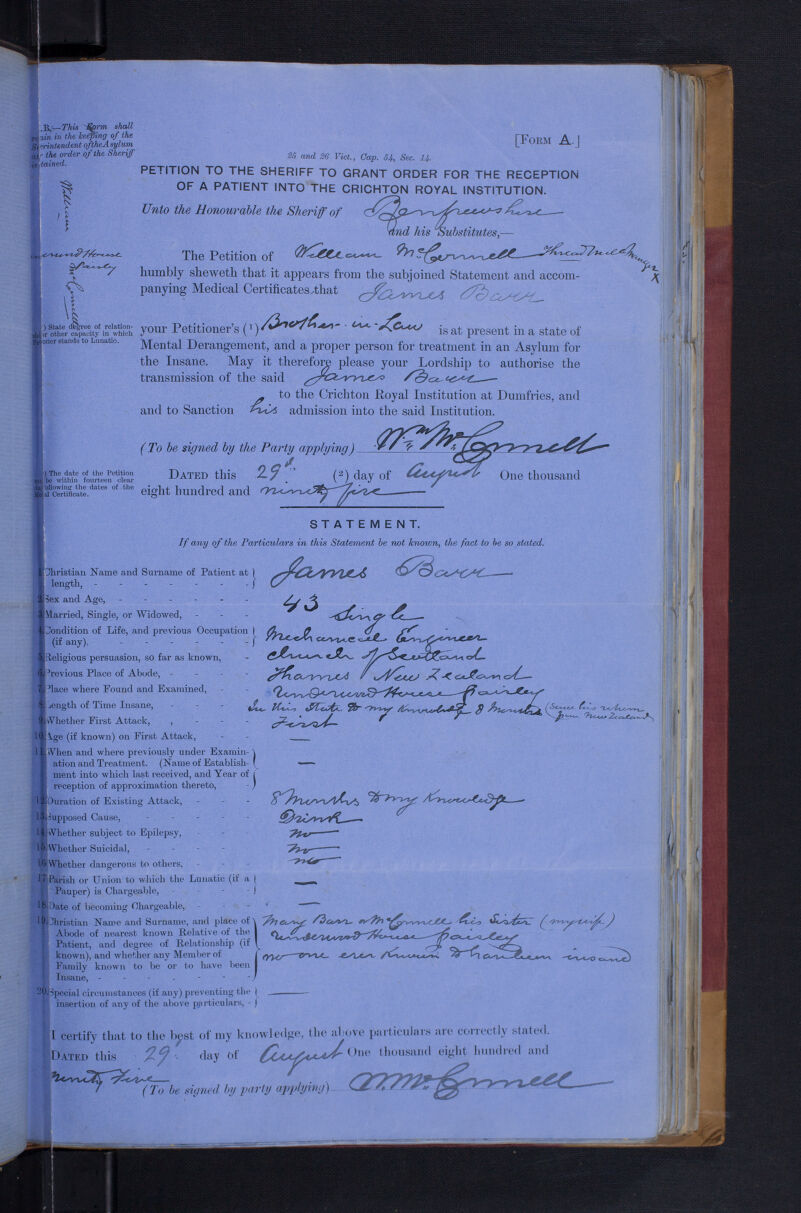 .B.—This Form shall
in in the keeping of the
erintendent of the Asylum
the order of the Sheriff
tained.
[FORM A.]
25 and 26 Vict., Cap. 54, Sec. 14.
PETITION TO THE SHERIFF TO GRANT ORDER FOR THE RECEPTION
OF A PATIENT INTO THE CRICHTON ROYAL INSTITUTION.
Unto the Honourable the Sheriff of Renfrewshire
and his Substitutes,—
William
McConnell
House
Paisley
The Petition of William McConnell Thread Mill Manager
humbly sheweth that it appears from the subjoined Statement and accom-
panying Medical Certificates, that James Barr
) State degree of relation-
or other capacity in which
oner stands to Lunatic.
your Petitioner's (1) Brother-in-Law is at present in a state of
Mental Derangement, and a proper person for treatment in an Asylum for
the Insane. May it therefore please your Lordship to authorise the
transmission of the said James Barr
to the Crichton Royal Institution at Dumfries, and
and to Sanction his admission into the said Institution.
(To be signed by the Party applying) Wm McConnell
) The date of the Petition
be within fourteen clear
following the dates of the
al Certificate.
DATED this 29th (2) day of August One thousand
eight hundred and ninety five
STATEMENT.
If any of the Particulars in this Statement be not known, the fact to be so stated.
1. Christian Name and Surname of Patient at length, - James Barr
2. Sex and Age, - 43
3. Married, Single, or Widowed, - Single
4. Condition of Life, and previous Occupation (if any). - Mechanical Engineer
5. Religious persuasion, so far as known, - Church of Scotland
6. Previous Place of Abode, - Thames New Zealand
7. Place where Found and Examined, - Underwood House Paisley
8. Length of Time Insane, - In this State to my knowledge 8 Months (Since his return from New Zealand)
9. Whether First Attack, - First
10. Age (if known) on First Attack, - —
11. When and where previously under Examin-
ation and Treatment. (Name of Establish-
ment into which last received, and Year of
reception of approximation thereto, - —
12. Duration of Existing Attack, - 8 Months to my knowledge
13. Supposed Cause, - Drink
14. Whether subject to Epilepsy, - no
15. Whether Suicidal, - no
16. Whether dangerous to others, - no
17. Parish or Union to which the Lunatic (if a
Pauper) is Chargeable, - —
18. Date of becoming Chargeable, - —
19. Christian Name and Surname, and place of
Abode of nearest known Relative of the
Patient, and degree of Relationship (if
known), and whether any Member of
Family known to be or to have been
Insane, -
Mary Barr or McConnell his Sister (my wife)
Underwood House Paisley
no one ever known to have been insane
20. Special circumstances (if any) preventing the
insertion of any of the above particulars, - —
I certify that to the best of my knowledge, the above particulars are correctly stated.
DATED this 29th day of August One thousand eight hundred and
ninety Five
(To be signed by party applying) Wm McConnell